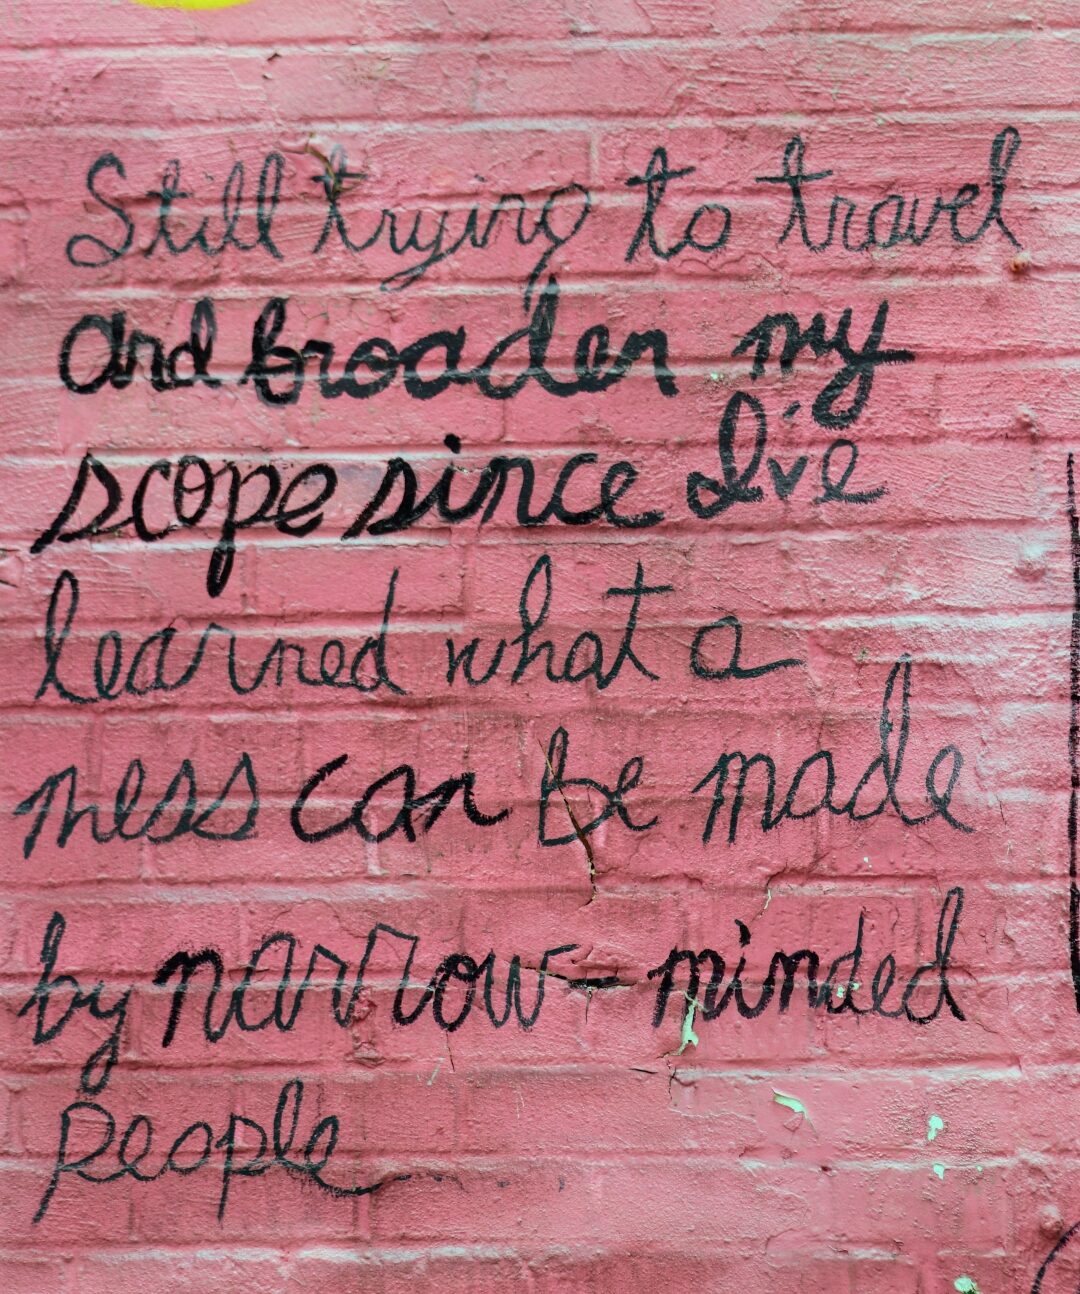 Still trying to travel
and broaden my
scope since I've
learned what a
mess can be made
by narrow-minded
people.......